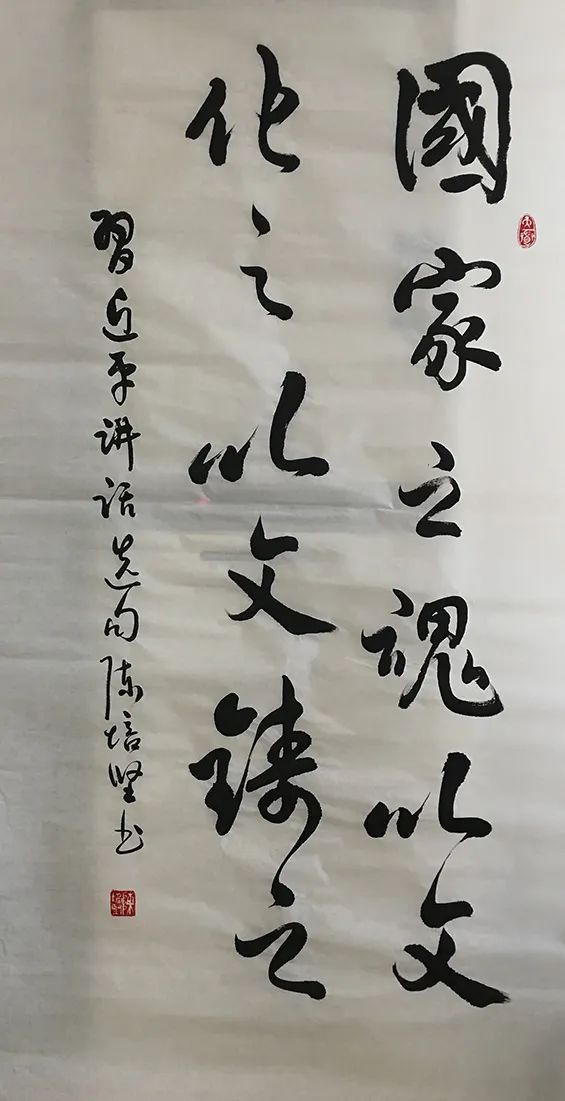 國家之魂以文
化之以文铸之
習近平讲话选句陈培坚书